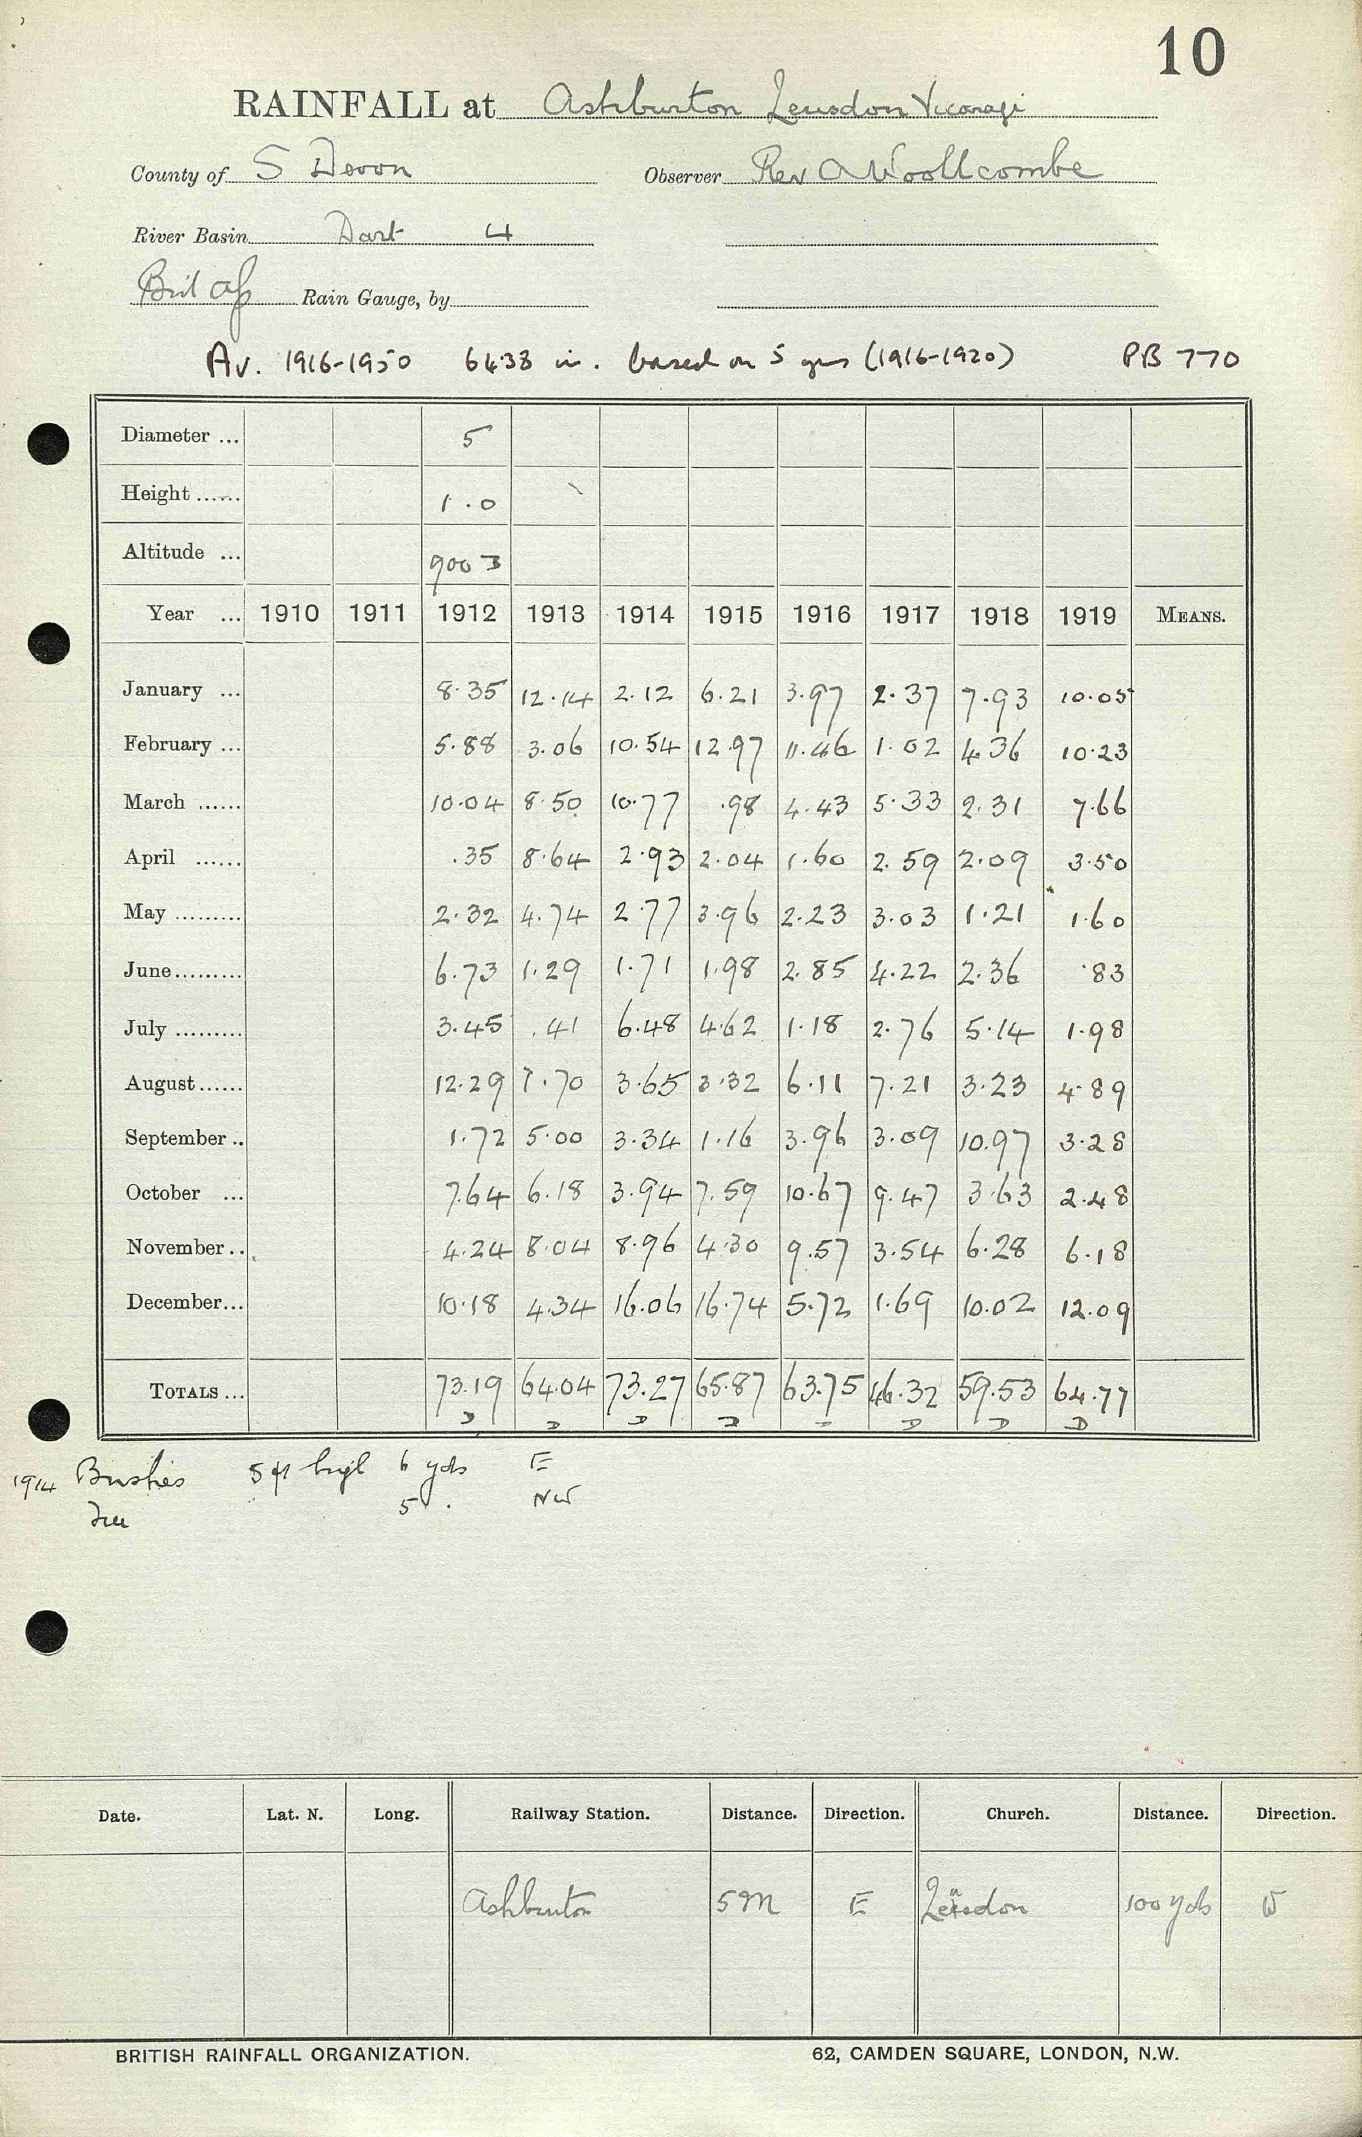 10
RAINFALL at Ashburton Leusdon Vicarage
County of S Devon Observer Rev A Woollcombe
River Basin Dart 4
Rain Gauge, by
Av. 1916-1950 64.38 in. based on 5 yrs (1916-1920) PB 770
Diameter ... 5
Height ...... 1.0
Altitude ... 900
Year ... 1910 1911 1912 1913 1914 1915 1916 1917 1918 1919 MEANS.
January ... 8.35 12.14 2.12 6.21 3.97 2.37 7.93 10.05
February ... 5.88 3.06 10.54 12.97 11.46 1.02 4.36 10.23
March ...... 10.04 8.50 10.77 .98 4.43 5.33 2.31 7.66
April ...... .35 8.64 2.93 2.04 1.60 2.59 2.09 3.50
May ......... 2.32 4.74 2.77 3.96 2.23 3.03 1.21 1.60
June......... 6.73 1.29 1.71 1.98 2.85 4.22 2.36 .83
July ......... 3.45 .41 6.48 4.62 1.18 2.76 5.14 1.98
August...... 12.29 1.70 3.65 3.32 6.11 7.21 3.23 4.89
September .. 1.72 5.00 3.34 1.16 3.96 3.09 10.97 3.28
October ... 7.64 6.18 3.94 7.59 10.67 9.47 3.63 2.48
November .. 4.24 8.04 8.96 4.30 9.57 3.54 6.28 6.18
December... 10.18 4.34 16.06 16.74 5.72 1.69 10.02 12.09
TOTALS ... 73.19 64.04 73.27 65.87 63.75 46.32 59.53 64.77
1914 Bushes 5 ft high 6 yds E
Tree 5 . NW
Date. Lat. N. Long. Railway Station. Distance. Direction. Church. Distance. Direction.
Ashburton 5 M E Leusdon 100 yds W
BRITISH RAINFALL ORGANIZATION. 62, CAMDEN SQUARE, LONDON, N.W.